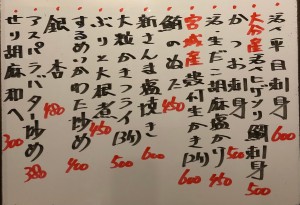 活〆平目刺身 600
大谷産活〆ヒゲソリ鯛刺身 500
かつお刺身 500
活・生だこ胡麻塩かり 450
宮城産殻付生かき(2ケ) 600
鮪のぬた 450
新さんま塩焼き 600
大粒かきフライ(3ケ) 500
ぶりと大根煮 450
するめいかわた炒め 400
銀杏 480
アスパラバター炒め 380
せり胡麻和へ 300